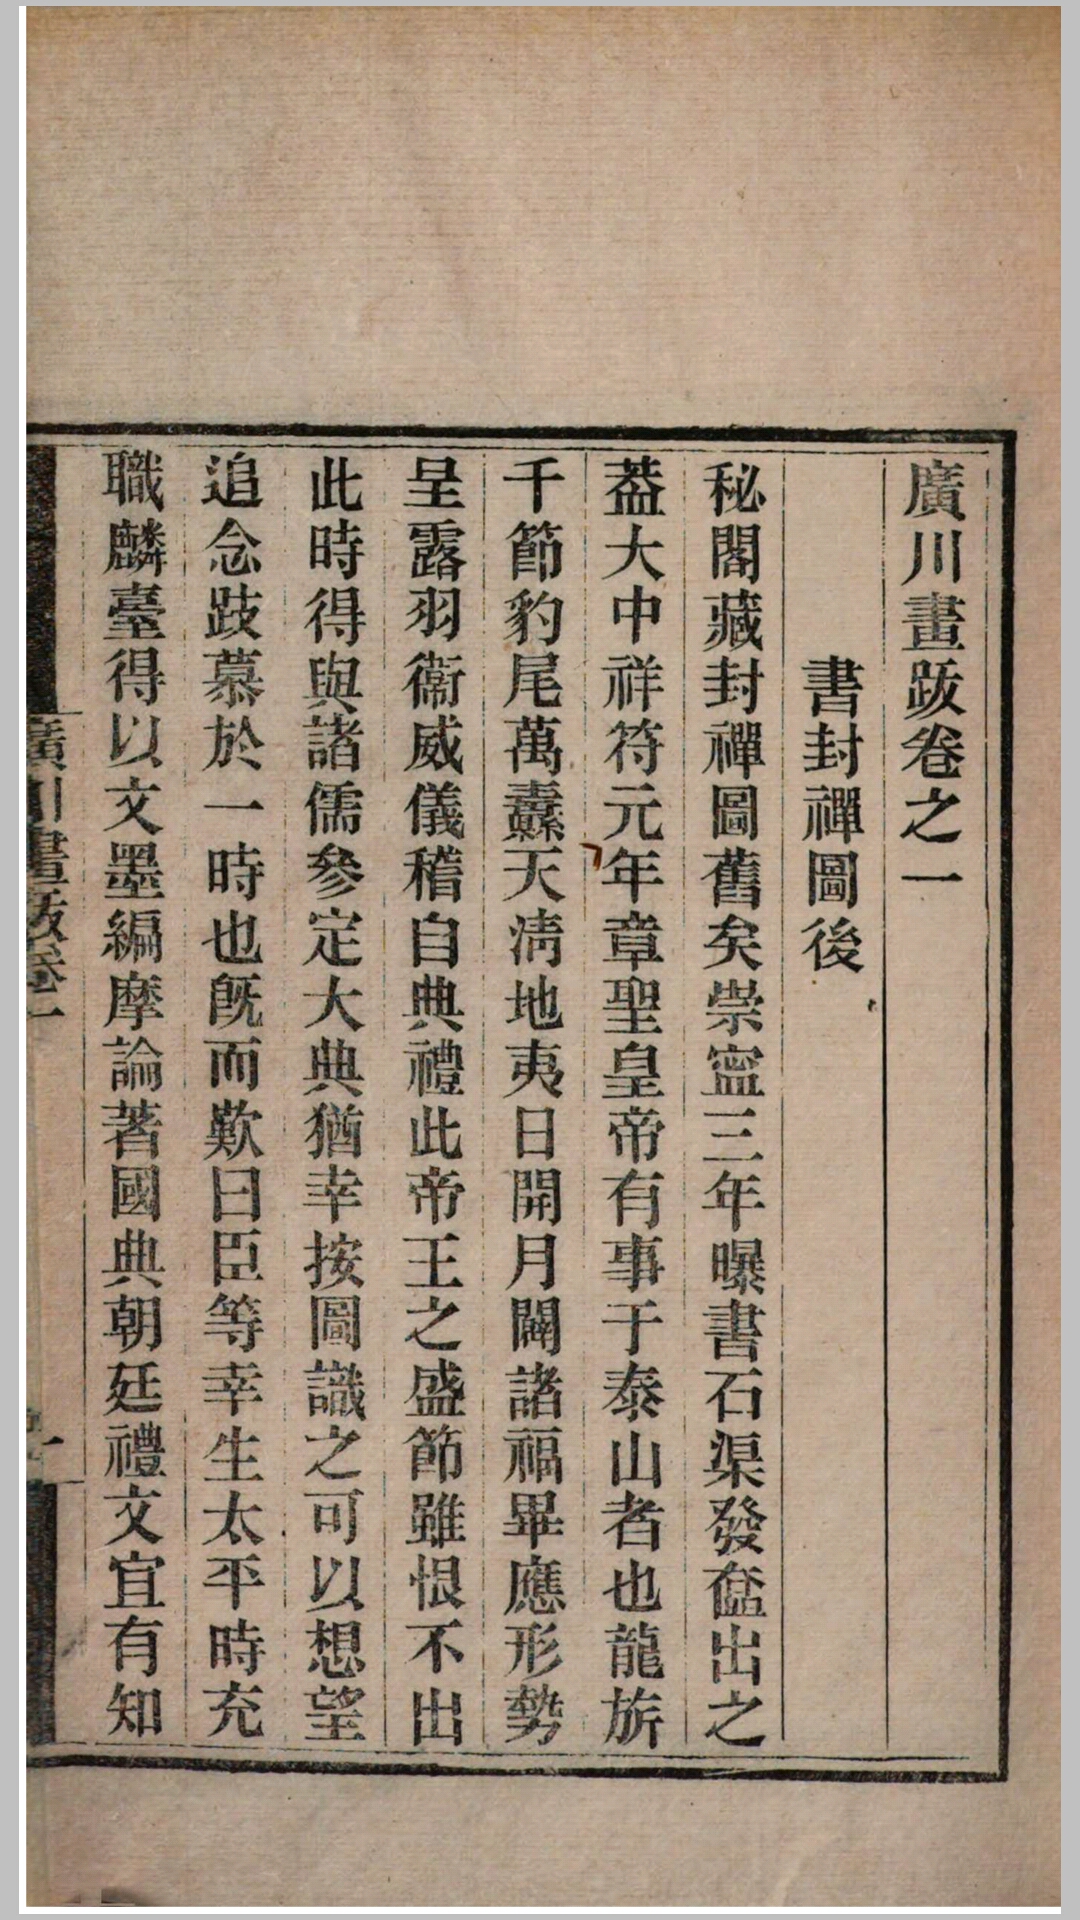 廣川畫跋卷之一
書封禪圖後
秘閣藏封禪圖舊矣崇寍三年曝書石渠發奩出之
葢大中祥符元年章聖皇帝有事于泰山者也龍旂
千節豹尾萬纛天淸地夷日開月闢諸福畢應形勢
呈露羽衞威儀稽自典禮此帝王之盛節雖恨不出
此時得與諸儒參定大典猶幸按圖識之可以想望
追念跂慕於一時也旣而歎曰臣等幸生太平時充
職麟臺得以文墨編摩論著國典朝廷禮文宜有知
廣川畫跋卷一
一